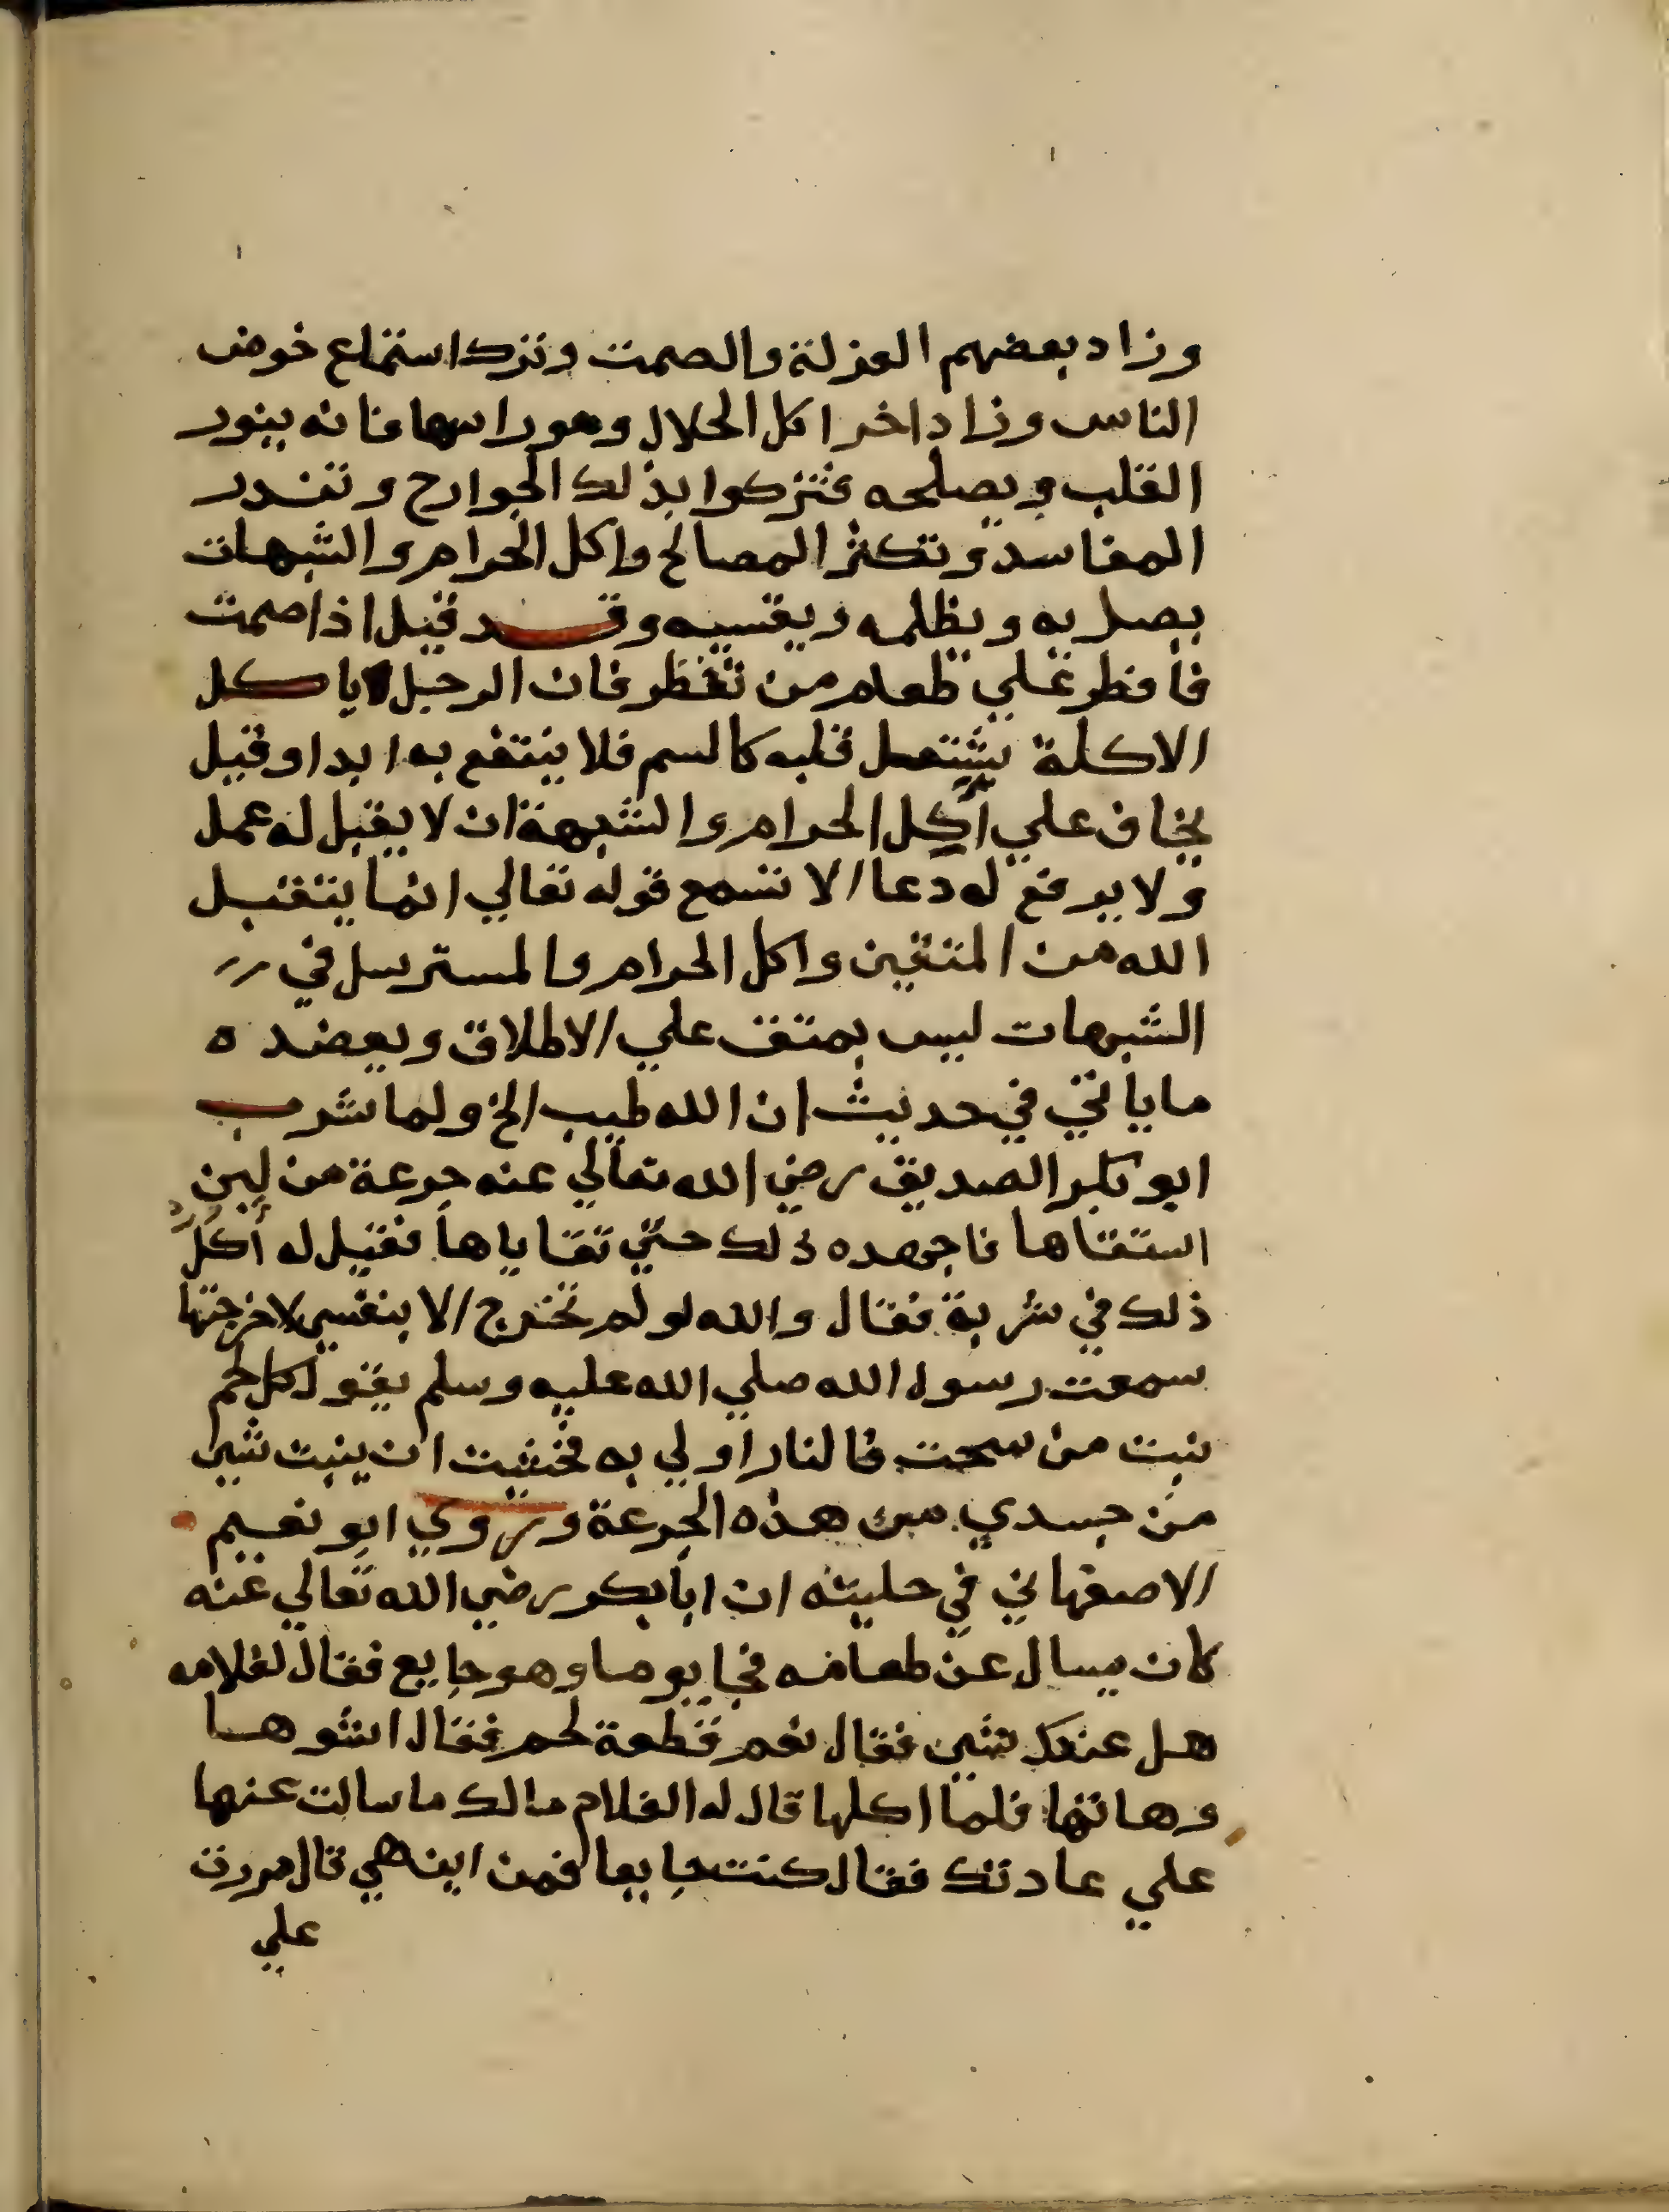 وزاد بعضهم العزلة والصمت وترك استماع خوض
الناس وزاد اخر اكل الحلال وهو راسها فانه ينور
القلب ويصلحه فتزكوا بذلك الجوارح وتندر
المفاسد وتكثر المصالح واكل الحرام والشبهات
يصديه ويظلمه ويقسيه وقد قيل اذا صمت
فافطر علي طعام من تفطر فان الرجل ياكل
الاكلة يشتعل قلبه كالسم فلا ينتفع به ابدا وقيل
يخاف علي آكل الحرام والشبهة ان لا يقبل له عمل
ولا يرفع له دعا الا تسمع قوله تعالي انما يتقبل
الله من المتقين واكل الحرام والمسترسل في
الشبهات ليس بمتق علي الاطلاق ويعضده
ما ياتي في حديث ان الله طيب الخ ولما شرب
ابو بكر الصديق رضي الله تعالي عنه جرعة من لبن
استقاها فاجهده ذلك حتي تقاياها فقيل له أكل
ذلك في شربة فقال والله لو لم تخرج الا بنفسي لاخرجتها
سمعت رسول الله صلي الله عليه وسلم يقول كل لحم
نبت من سحت فالنار اولي به فخشيت ان ينبت شي
من جسدي من هذه الجرعة وروي ابو نعيم
الاصفهاني في حليته ان ابا بكر رضي الله تعالي عنه
كان يسال عن طعامه فجا يوما وهو جايع فقال لغلامه
هل عندك شي فقال نعم قطعة لحم فقال اشوها
وهاتها فلما اكلها قال له الغلام مالك ما سالت عنها
علي عادتك فقال كنت جايعا فمن اين هي قال مررت
علي